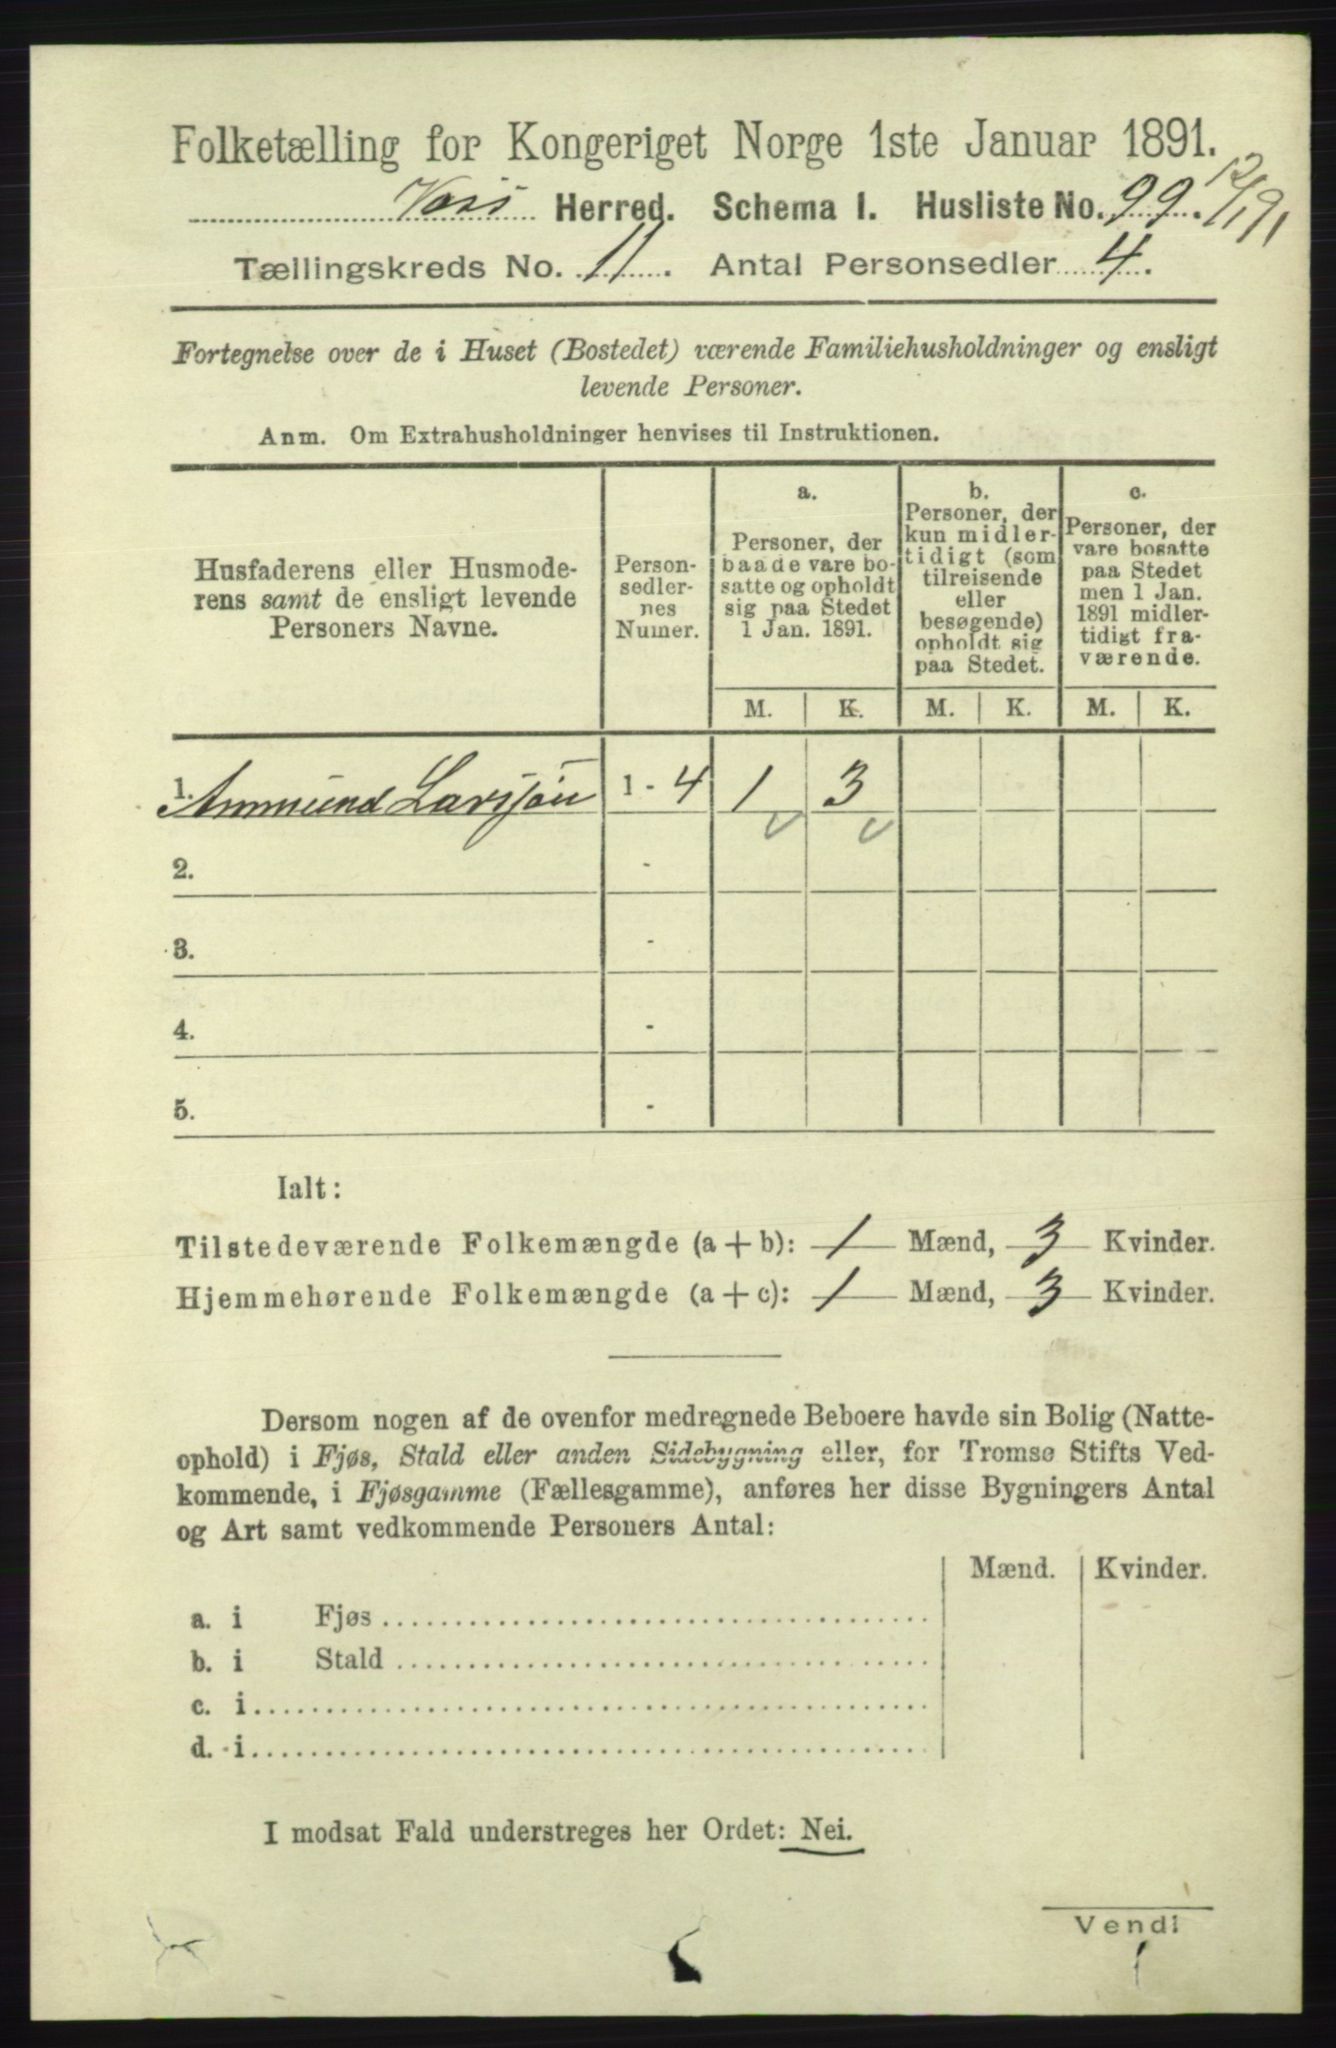 Folketælling for Kongeriget Norge 1ste Januar 1891.
Voss Herred. Schema I. Husliste No. 99. 12/1 91
Tællingskreds No. 11. Antal Personsedler 4.
Fortegnelse over de i Huset (Bostedet) værende Familiehusholdninger og ensligt
levende Personer.
Anm. Om Extrahusholdninger henvises til Instruktionen.
Husfaderens eller Husmode-
rens samt de ensligt levende
Personers Navne.
Person-
sedler-
nes
Numer.
a.
Personer, der
baade vare bo-
satte og opholdt
sig paa Stedet
1 Jan. 1891.
b.
Personer, der
kun midler-
tidigt (som
tilreisende
eller
besøgende)
opholdt sig
paa Stedet.
c.
Personer, der
vare bosatte
paa Stedet
men 1 Jan.
1891 midler-
tidigt fra-
værende.
M. K. M. K. M. K.
1. Ammund Larsjøn 1 - 4 1 3
2. -
3. -
4. -
5. -
Ialt:
Tilstedeværende Folkemængde (a + b): 1 Mænd, 3 Kvinder.
Hjemmehørende Folkemængde (a + c): 1 Mænd, 3 Kvinder.
Dersom nogen af de ovenfor medregnede Beboere havde sin Bolig (Natte-
ophold) i Fjøs, Stald eller anden Sidebygning eller, for Tromsø Stifts Ved-
kommende, i Fjøsgamme (Fællesgamme), anføres her disse Bygningers Antal
og Art samt vedkommende Personers Antal:
Mænd. Kvinder.
a. i Fjøs
b. i Stald
c. i
d. i
I modsat Fald understreges her Ordet: Nei.
Vend!